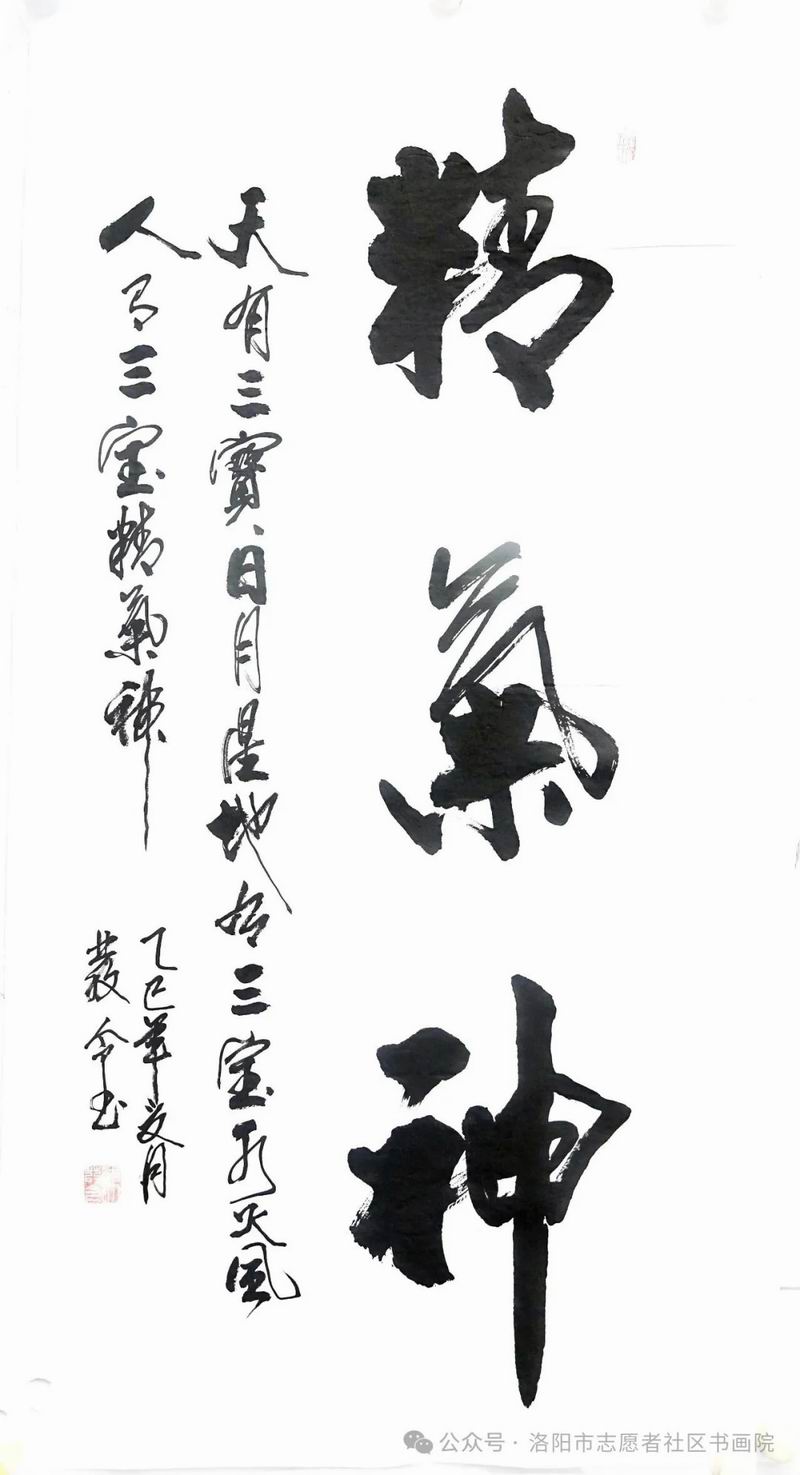 精氣神
天有三寳日月星地有三宝水火風
人有三宝精氣神
乙巳年夏月
公众号·洛阳市志愿者社区书画院